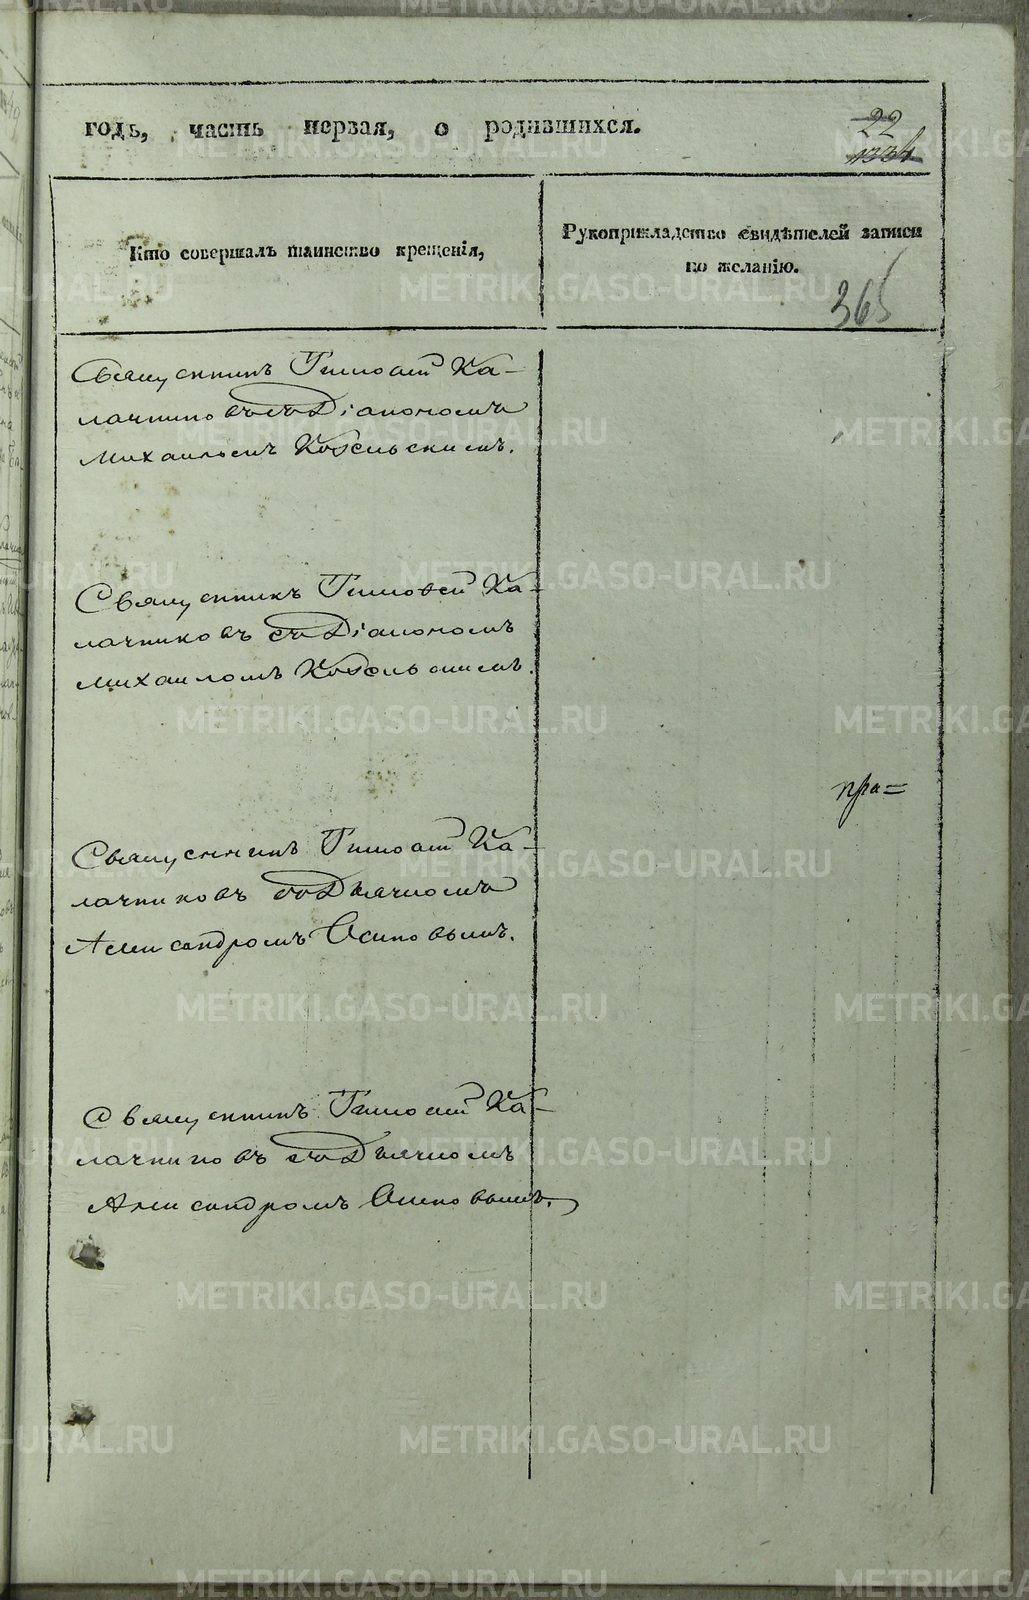 годъ, часть первая, о родившихся.
22
Кто совершалъ таинство крещенія,
Рукоприкладство свидѣтелей записи
по желанію.
365
Священникъ Тимофей Ка-
лачниковъ съ Діакономъ
Михаиломъ Козельскимъ.
Священникъ Тимофей Ка-
лачниковъ съ Діакономъ
Михаиломъ Козельскимъ.
пра=
Священникъ Тимофей Ка-
лачниковъ съ Дьячкомъ
Александромъ Осиповымъ.
Священникъ Тимофей Ка-
лачниковъ съ Дьячкомъ
Александромъ Осиповымъ.
METRIKI.GASO-URAL.RU